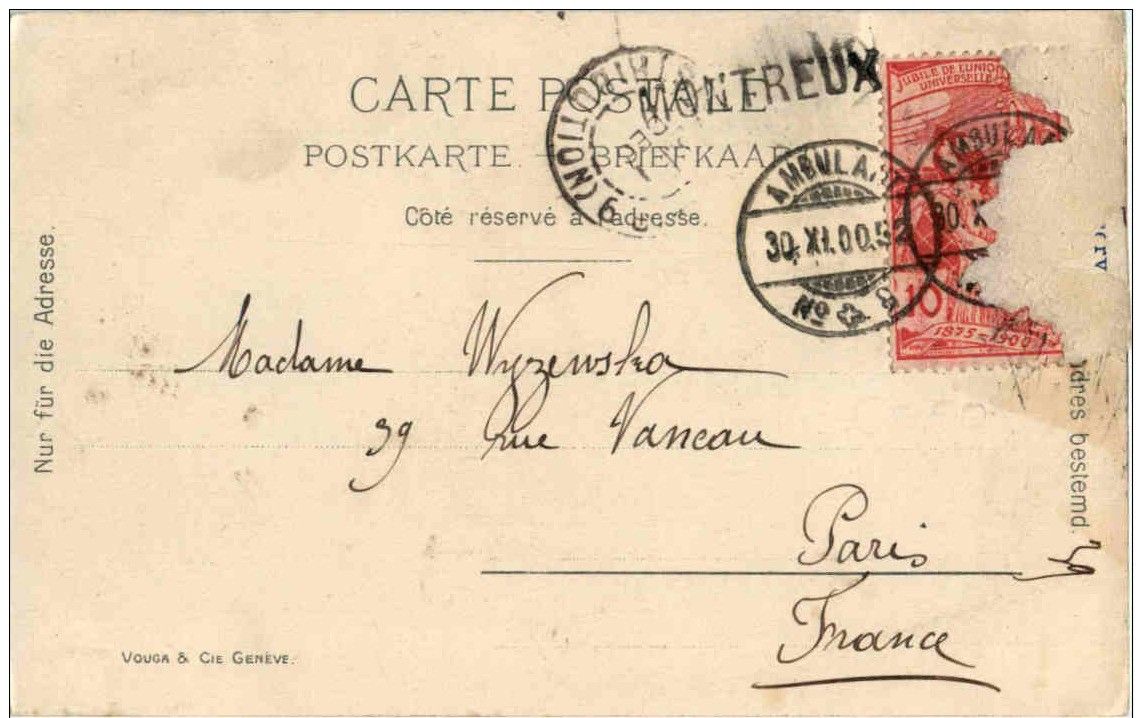 CARTE POSTALE
MONTREUX
POSTKARTE. — BRIEFKAAR
Côté réservé à l'adresse.
JUBILÉ DE L'UNION
UNIVERSELLE
10
1875-1900
AMBULANT
30.XI.00.5
No
AMBULA
30.X
DISTRIBUTION
Nur für die Adresse.
Madame Wyzewska
39 Rue Vaneau
Paris
France
dres bestemd.
VOUGA & CIE GENÈVE.